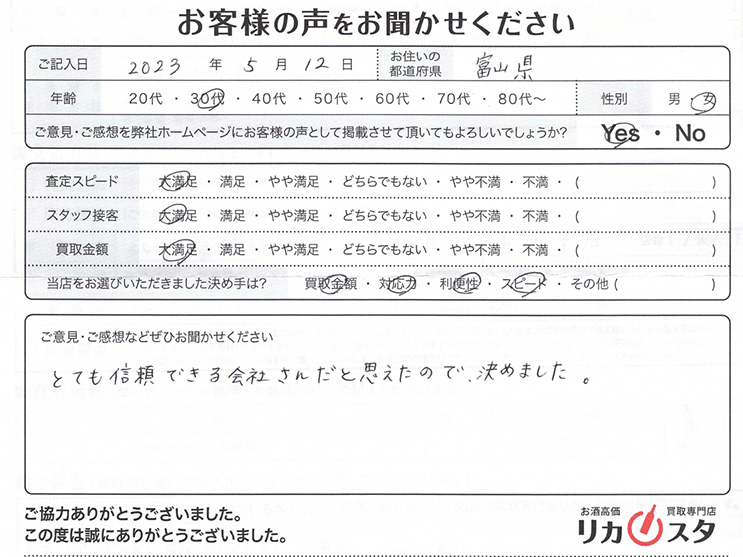 お客様の声をお聞かせください
ご記入日 2023 年 5 月 12 日 お住いの都道府県 富山県
年齢 20代・30代・40代・50代・60代・70代・80代〜 性別 男・女
ご意見・ご感想を弊社ホームページにお客様の声として掲載させて頂いてもよろしいでしょうか? Yes・No
査定スピード 大満足・満足・やや満足・どちらでもない・やや不満・不満・( )
スタッフ接客 大満足・満足・やや満足・どちらでもない・やや不満・不満・( )
買取金額 大満足・満足・やや満足・どちらでもない・やや不満・不満・( )
当店をお選びいただきました決め手は? 買取金額・対応力・利便性・スピード・その他( )
ご意見・ご感想などぜひお聞かせください
とても信頼できる会社さんだと思えたので、決めました。
ご協力ありがとうございました。
この度は誠にありがとうございました。
お酒高価 買取専門店
リカスタ